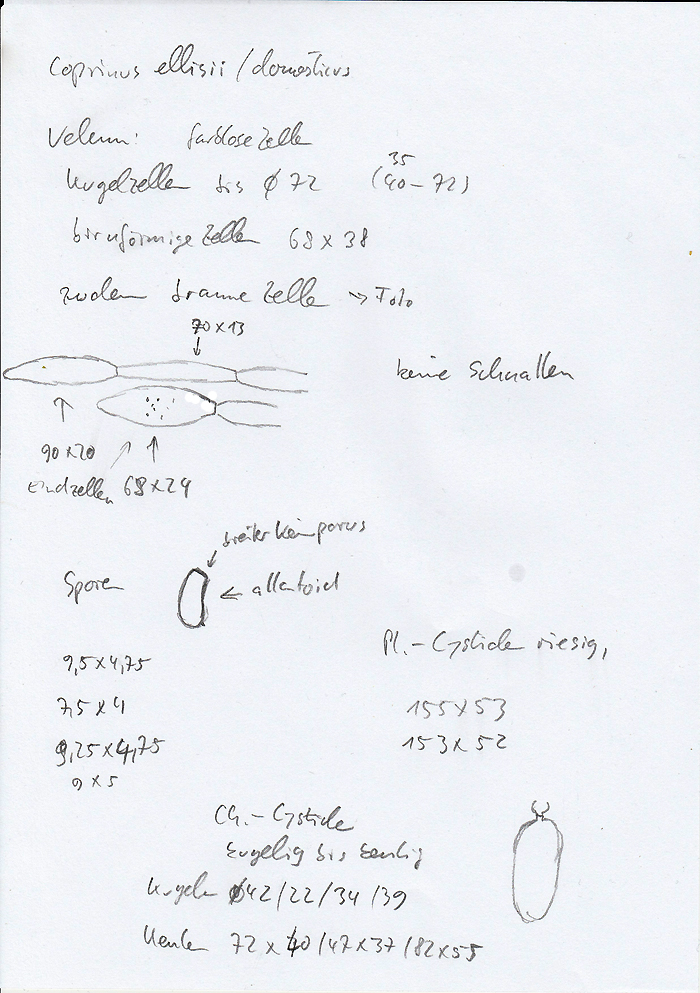 Coprinus ellisii / domesticus
Velum: farblose Zellen
35
Kugelzellen bis ϕ 72 (40 – 72)
birnförmige Zellen 68 x 38
zudem braune Zellen → Foto
70 x 13
keine Schnallen
90 x 20
Endzellen 68 x 24
breiter Keimporus
Sporen ← allantoid
Pl.- Cystiden riesig,
9,5 x 4,75
7,5 x 4
155 x 53
9,25 x 4,75
153 x 52
9 x 5
Ch.- Cystiden
kugelig bis keulig
Kugeln ϕ 42 / 22 / 34 / 39
Keulen 72 x 40 / 47 x 37 / 82 x 55